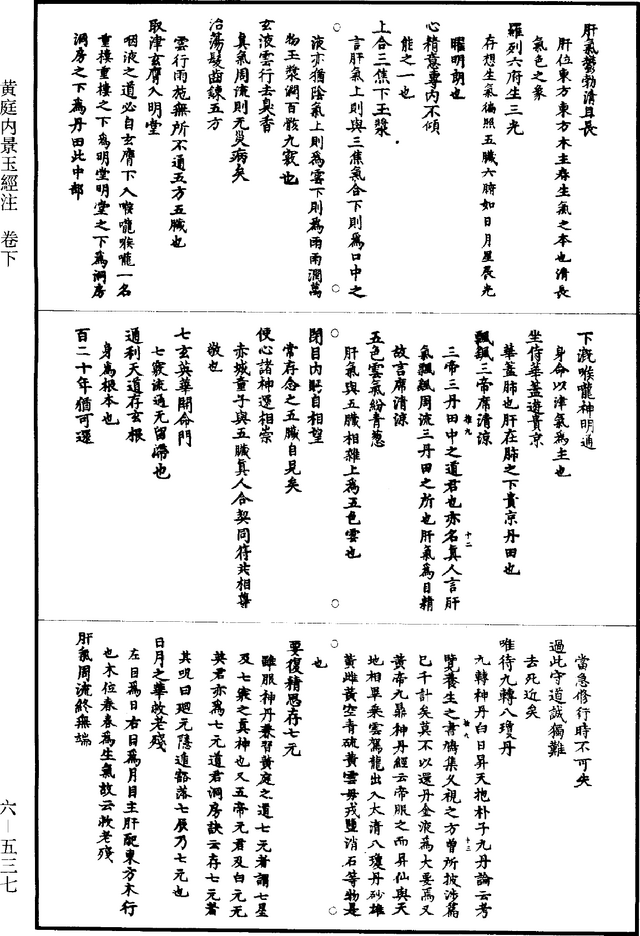 黄庭内景玉經注　卷下
肝氣鬱勃清且長
肝位東方東方木主春生氣之本也清長
氣色之象
羅列六府生三光
存想生氣徧照五臟六腑如日月星辰光
曜明朗也
心精意專内不傾
能之一也
上合三焦下玉漿
言肝氣上則與三焦氣合下則爲口中之
液亦猶陰氣上則爲雲下則爲雨雨潤萬
物玉漿潤百骸九竅也
玄液雲行去臭香
真氣周流則无災病矣
治蕩髮齒鍊五方
雲行雨施無所不通五方五臟也
取津玄膺入明堂
咽液之道必自玄膺下入喉嚨喉嚨一名
重樓重樓之下爲明堂明堂之下爲洞房
洞房之下爲丹田此中部
下溉喉嚨神明通
身命以津氣爲主也
坐侍華蓋遊貴京
華蓋肺也肝在肺之下貴京丹田也
飄颻三帝席清涼
三帝三丹田中之道君也亦名真人言肝
氣飄颻周流三丹田之所也肝氣爲目精
故言席清涼
五色雲氣紛青葱
肝氣與五臟相雜上爲五色雲也
閉目内眄自相望
常存念之五臟自見矣
使心諸神還相崇
赤城童子與五臟真人合契同符共相尊
敬也
七玄英華開命門
七竅流通无留滯也
通利天道存玄根
身爲根本也
百二十年猶可還
當急修行時不可失
過此守道誠獨難
去死近矣
唯待九轉八瓊丹
九轉神丹白日昇天抱朴子九丹論云考
覽養生之書鳩集久視之方曾所披涉篇
已千計矣莫不以還丹金液爲大要焉又
黄帝九鼎神丹經云帝服之而昇仙與天
地相畢乘雲駕龍出入太清八瓊丹砂雄
黄雌黄空青硫黄雲母戎鹽消石等物是
也
要復精思存七元
雖服神丹兼習黄庭之道七元者謂七星
及七竅之真神也又五帝元君及白元无
英君亦爲七元道君洞房訣云存七元者
其呪曰廻元隱遁豁落七辰乃七元也
日月之華救老殘
左目爲日右目爲月目主肝配東方木行
也木位春春爲生氣故云救老殘
肝氣周流終無端
六—五三七